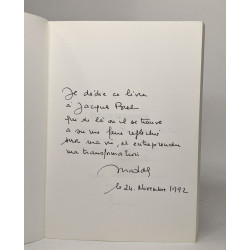 Je dédie ce livre
à Jacques
qui de là où il se trouve
a su me faire réfléchir
sur ma vie, et entreprendre
ma transformation
le 24. Novembre 1992